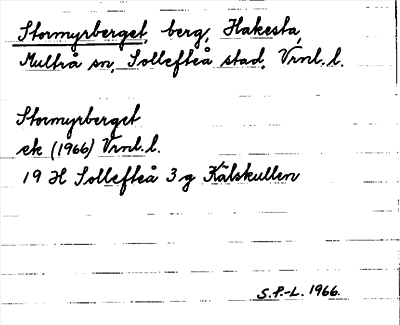 Stormyrberget, berg, Hakesta,
Multrå sn, Sollefteå stad, Vrnl. l.
Stormyrberget
ek (1966) Vrnl. l.
19 H Sollefteå 3 g Kålskullen
S.P.-L. 1966.